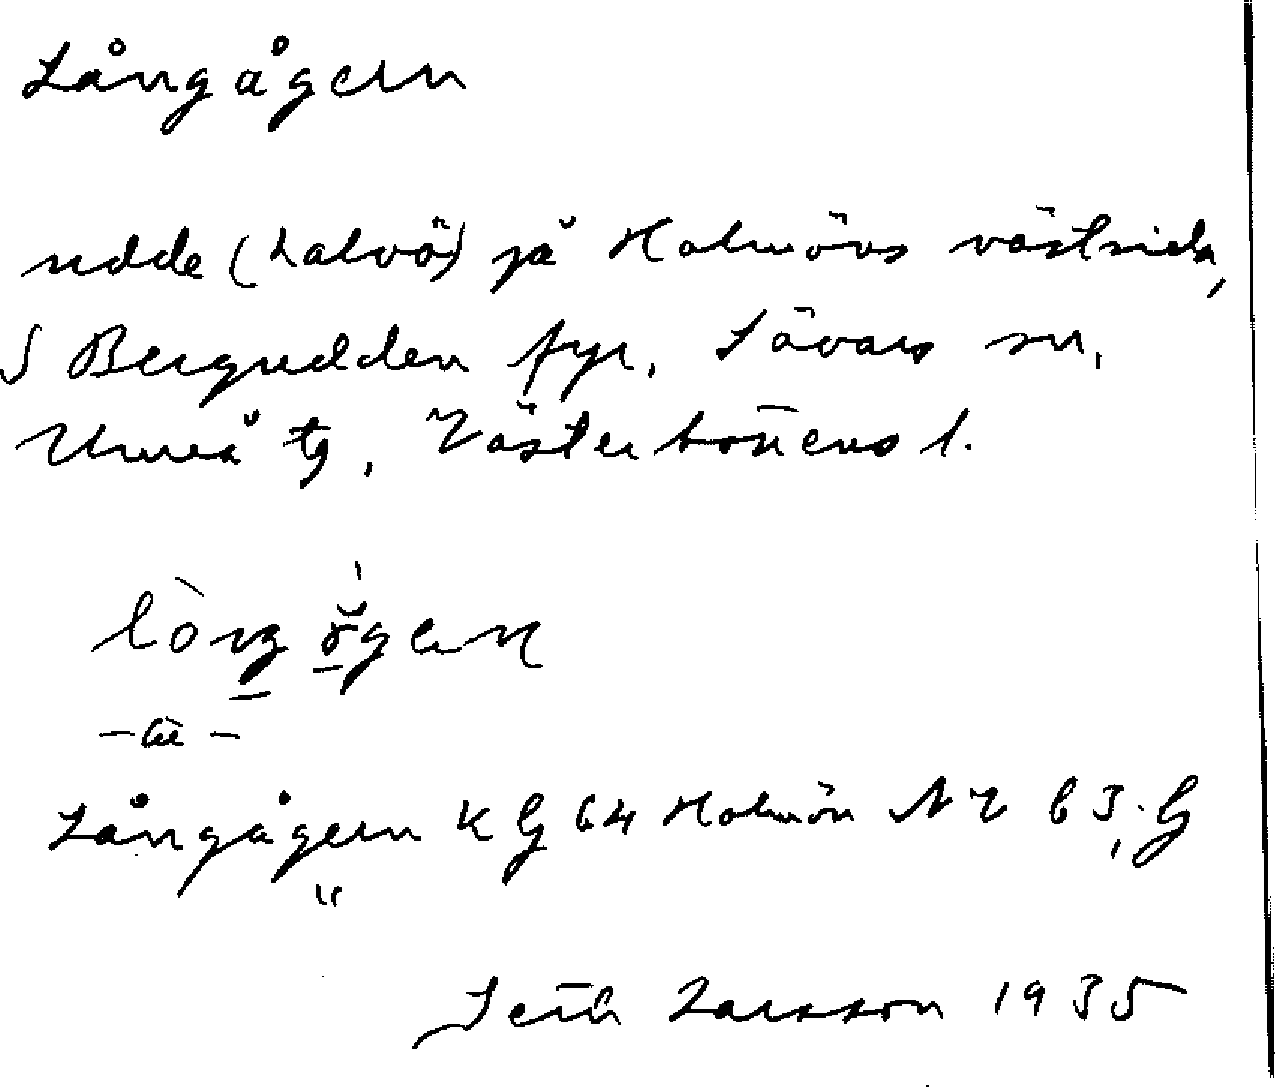 Långågern
udde (halvö) på Holmöns västsida,
S Bergudden fyr. Sävars sn,
Umeå tg, Västerbottens l.
lòng ògern
Långågern K G 64 Holmön NV 63, G
"
Seth Larsson 1935